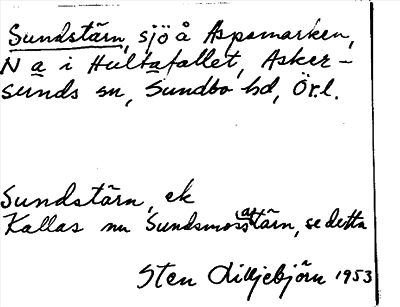 Sundstärn, sjö å Aspamarken,
N a i Hultafallet, Asker-
sunds sn, Sundbo hd, Ör.l.
Sundstärn, ek
Kallas nu Sundsmossatärn, se detta
Sten Lilljebjörn 1953